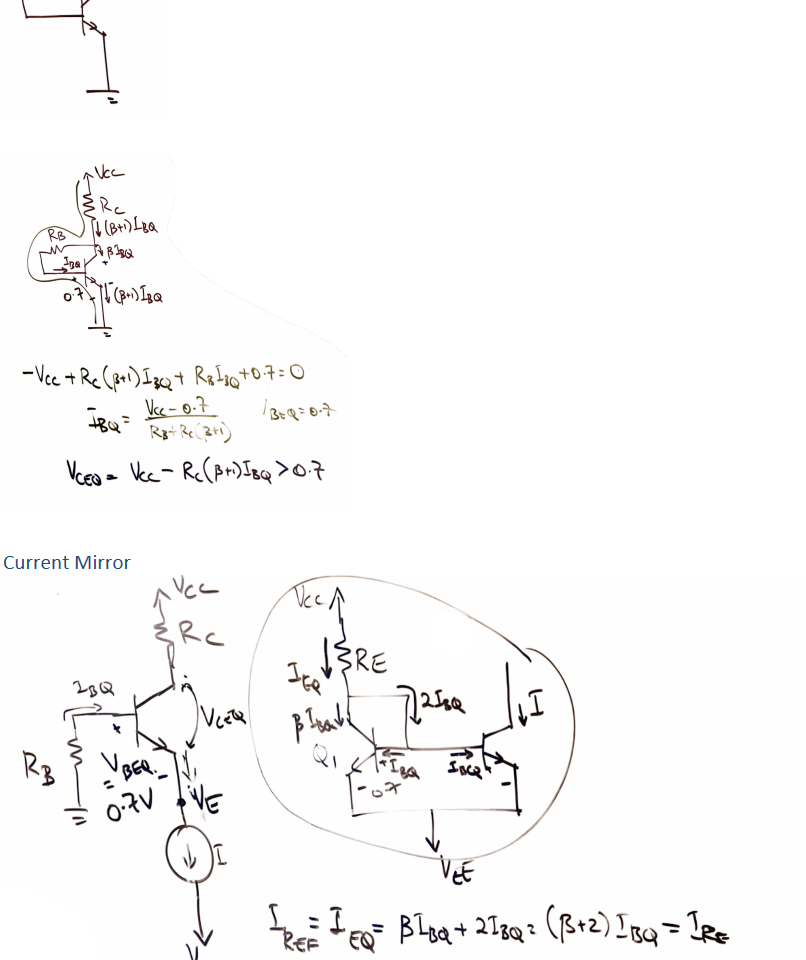 Vcc
Rc
(β+1)IBQ
RB
βIBQ
IBQ
+
0.7 -
(β+1)IBQ
-Vcc + Rc(β+1)IBQ + RBIBQ + 0.7 = 0
IBQ = Vcc - 0.7 / RB + Rc(β+1)
VBEQ = 0.7
VCEQ = Vcc - Rc(β+1)IBQ > 0.7
Current Mirror
Vcc
Rc
IBQ
VCEQ
+
RB
VBEQ -
=
0.7V
VE
I
V
Vcc
RE
IEQ
2IBQ
I
βIBQ
Q1
+ IBQ
IBQ +
- 0.7
-
VEE
IREF = IEQ = βIBQ + 2IBQ = (β+2)IBQ = IRE